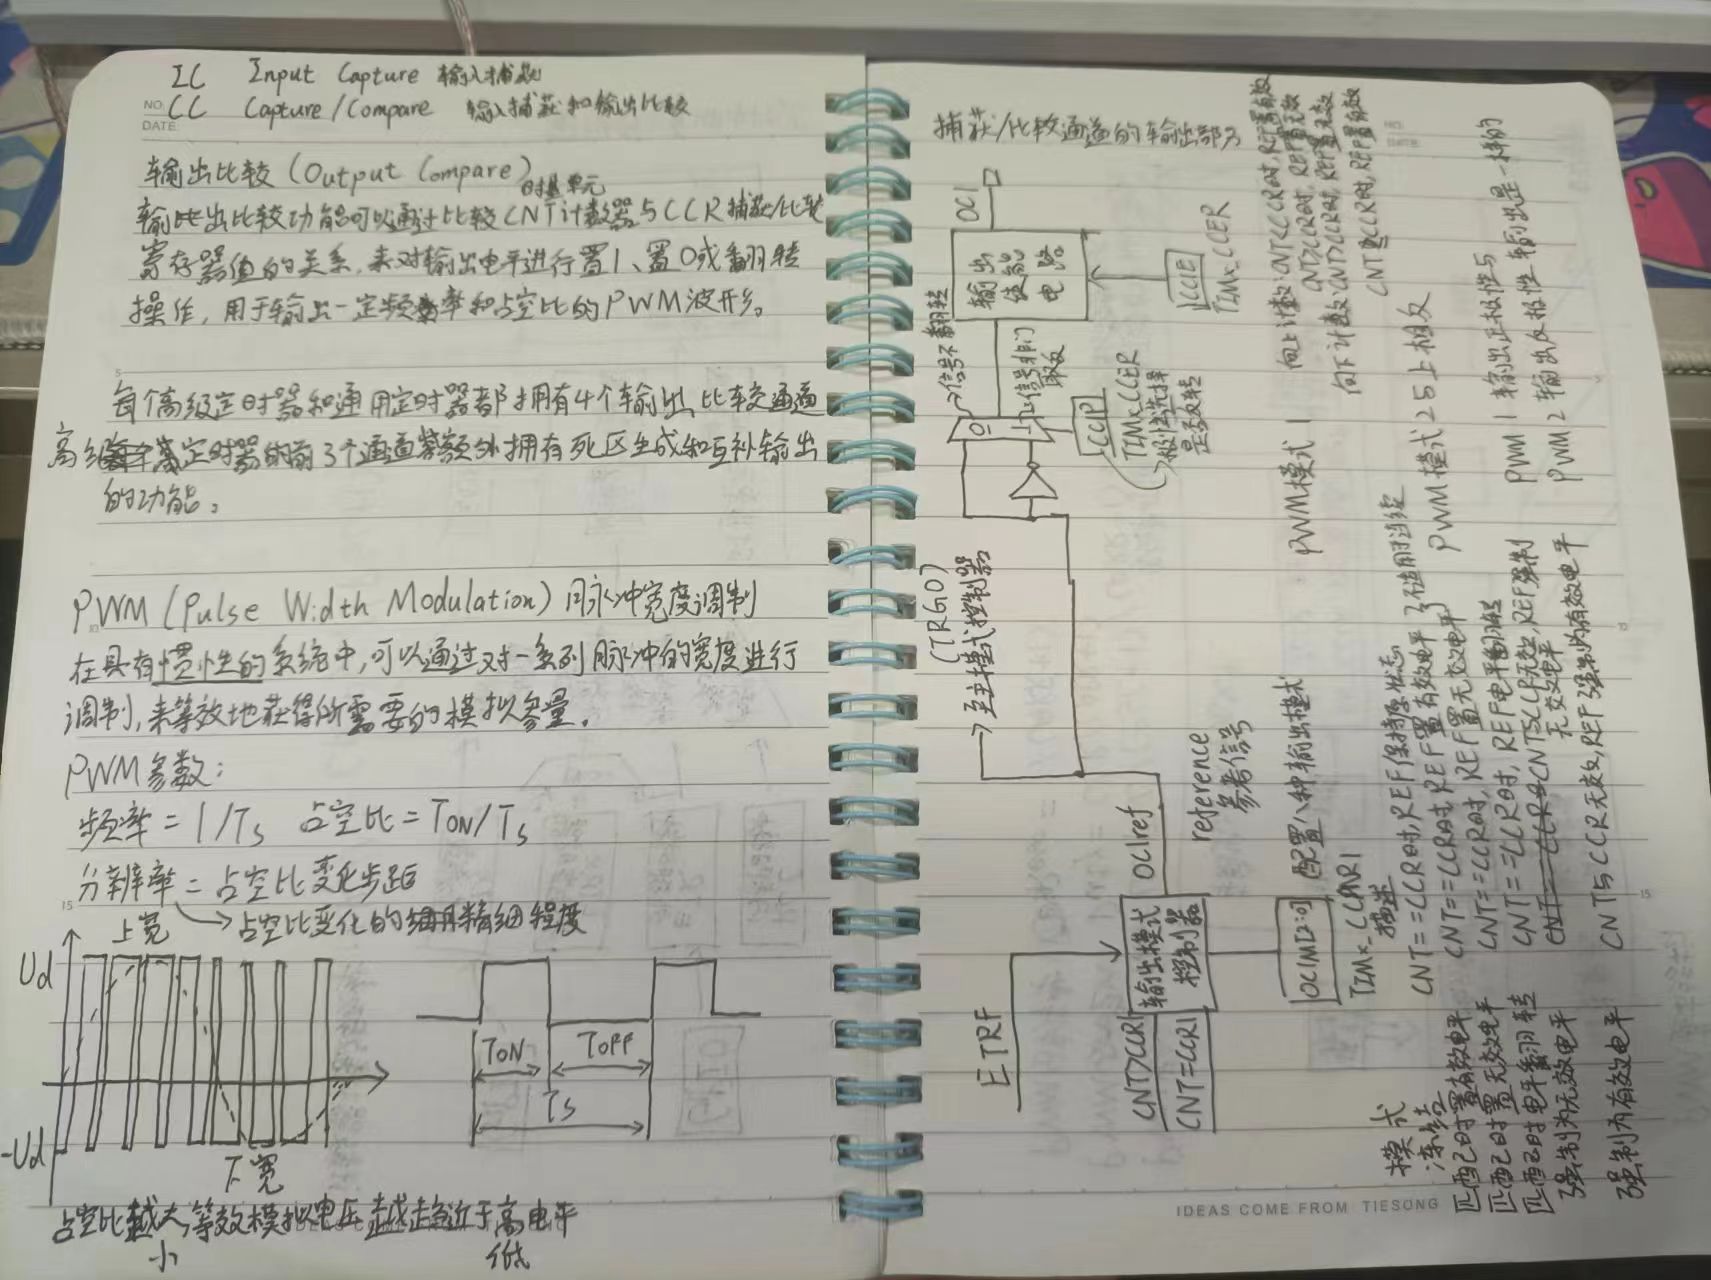 IC Input Capture 输入捕获
NO.
CC Capture/Compare 输入捕获和输出比较
DATE:
输出比较(Output Compare)
时基单元
输出比较功能可以通过比较CNT计数器与CCR捕获/比较
寄存器值的关系,来对输出电平进行置1、置0或翻转
操作,用于输出一定频率和占空比的PWM波形。
5
每个高级定时器和通用定时器都拥有4个输出比较通道
高级定时器的前3个通道额外拥有死区生成和互补输出
的功能。
10
PWM(Pulse Width Modulation)脉冲宽度调制
在具有惯性的系统中,可以通过对一系列脉冲的宽度进行
调制,来等效地获得所需要的模拟参量。
PWM参数:
频率=1/Ts 占空比=TON/Ts
分辨率=占空比变化步距
15
占空比变化的精细程度
上宽
Ud
-Ud
下宽
TON
TOFF
Ts
占空比越大,等效模拟电压越趋近于高电平
小 低
捕获/比较通道的输出部分
OC1
输出使能电路
CC1E
TIMx_CCER
信号不翻转
0
1
信号非门取反
CC1P
TIMx_CCER
极性选择
是否反转
(TRGO)
至主模式控制器
OC1ref
reference
参考信号
ETRF
输出模式
控制器
CNT>CCR1
CNT=CCR1
OC1M[2:0]
配置8种输出模式
TIMx_CCMR1
模式 描述
冻结 CNT==CCR时,REF保持原状态
匹配时置有效电平 CNT==CCR时,REF置有效电平
匹配时置无效电平 CNT==CCR时,REF置无效电平
匹配时电平翻转 CNT==CCR时,REF电平翻转
强制为无效电平 CNT与CCR无效,REF强制
无效电平
强制为有效电平 CNT与CCR无效,REF强制为有效电平
PWM模式1 向上计数:CNT<CCR时,REF置有效
CNT≥CCR时,REF置无效
向下计数:CNT>CCR时,REF置无效
CNT≤CCR时,REF置有效
PWM模式2与上相反
PWM1输出正极性与
PWM2输出反极性输出是一样的
NO.
DATE:
15
IDEAS COME FROM TIESONG